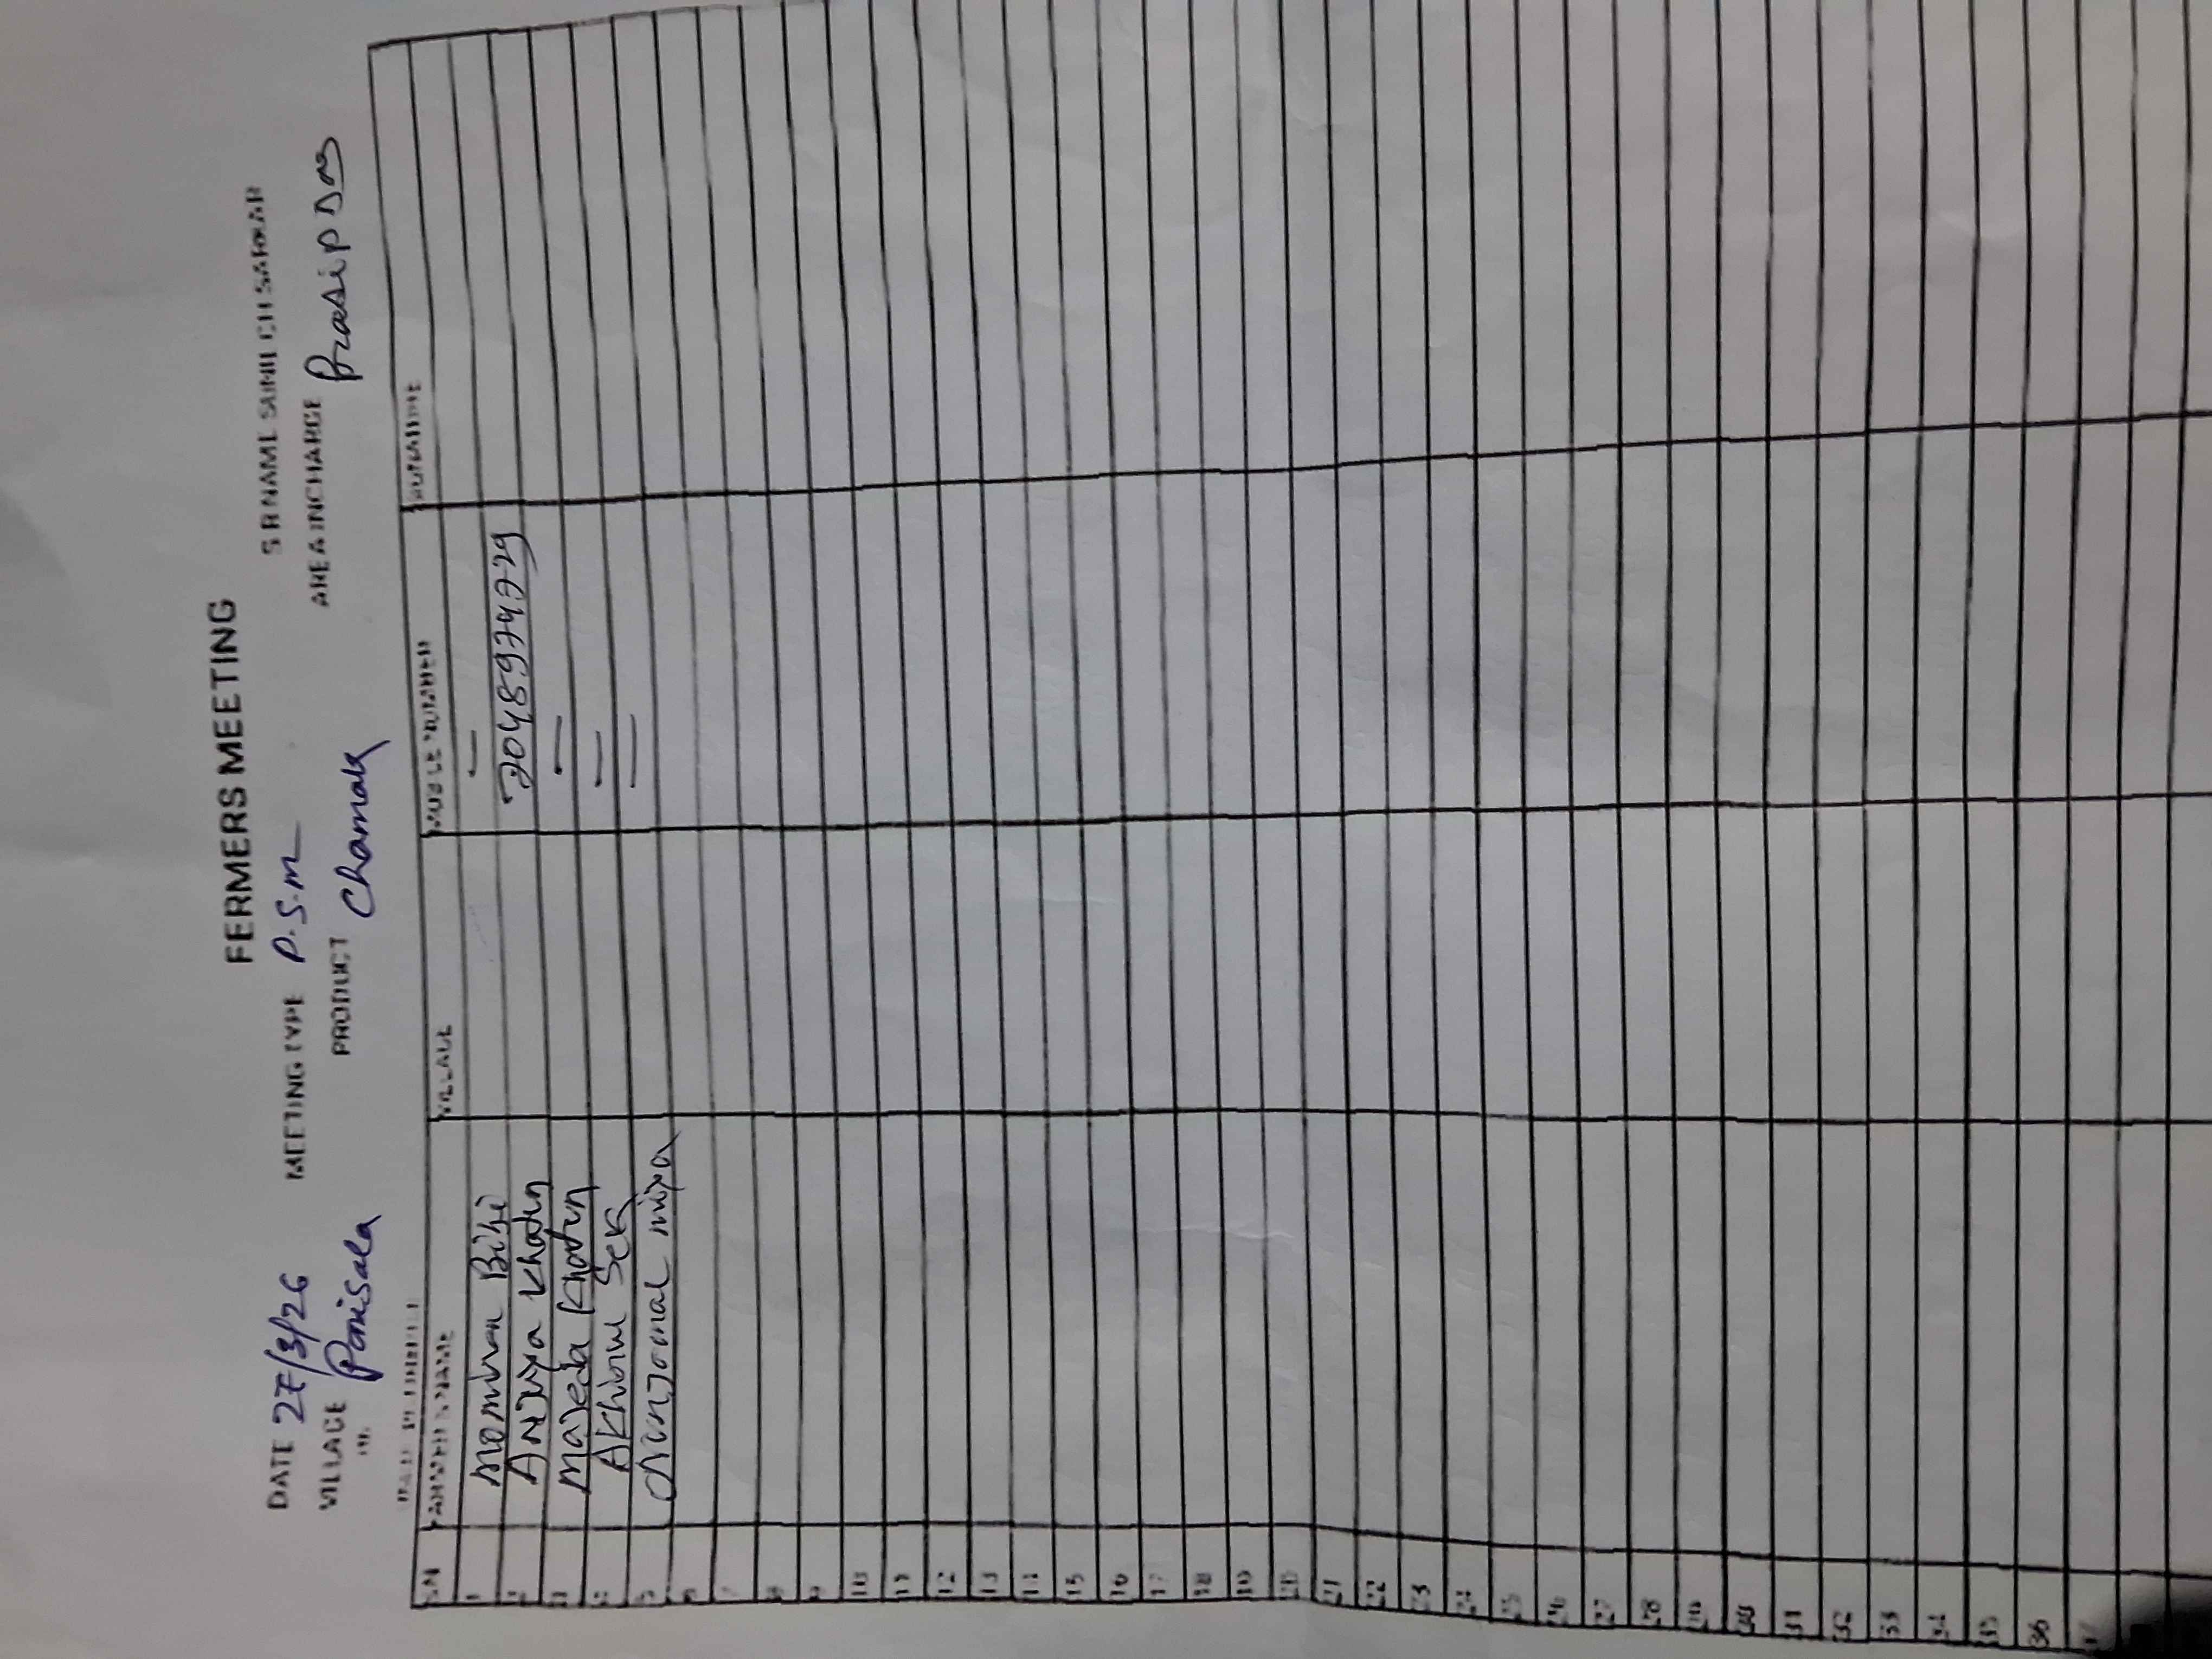 FERMERS MEETING
DATE 27/3/26 MEETING TYPE P.S.m S R NAME SUNIL CH SARKAR
VILLAGE Panisala PRODUCT Chamak AREA INCHARGE Prasip Das
SN FARMER S NAME VILLAGE MOBILE NUMBER SIGNATURE
1 Mominan Bibi —
2 Anjuya Khatun 7048974729
3 Majeda Khatun —
4 Sek —
5 Nurjamal miya —
6
7
8
9
10
11
12
13
14
15
16
17
18
19
20
21
22
23
24
25
26
27
28
29
30
31
32
33
34
35
36